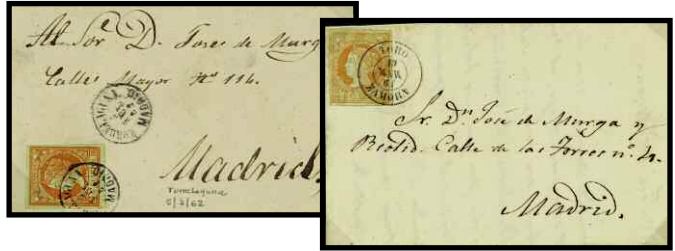 Al Sor. D. Jose de Murga
Calle Mayor Nº 114.
MADRID
Madrid
Torrelaguna
5/3/62
TORO
ZAMORA
Sr. Dn. José de Murga y
Reolid. Calle de las Torres nº. 4.
Madrid.